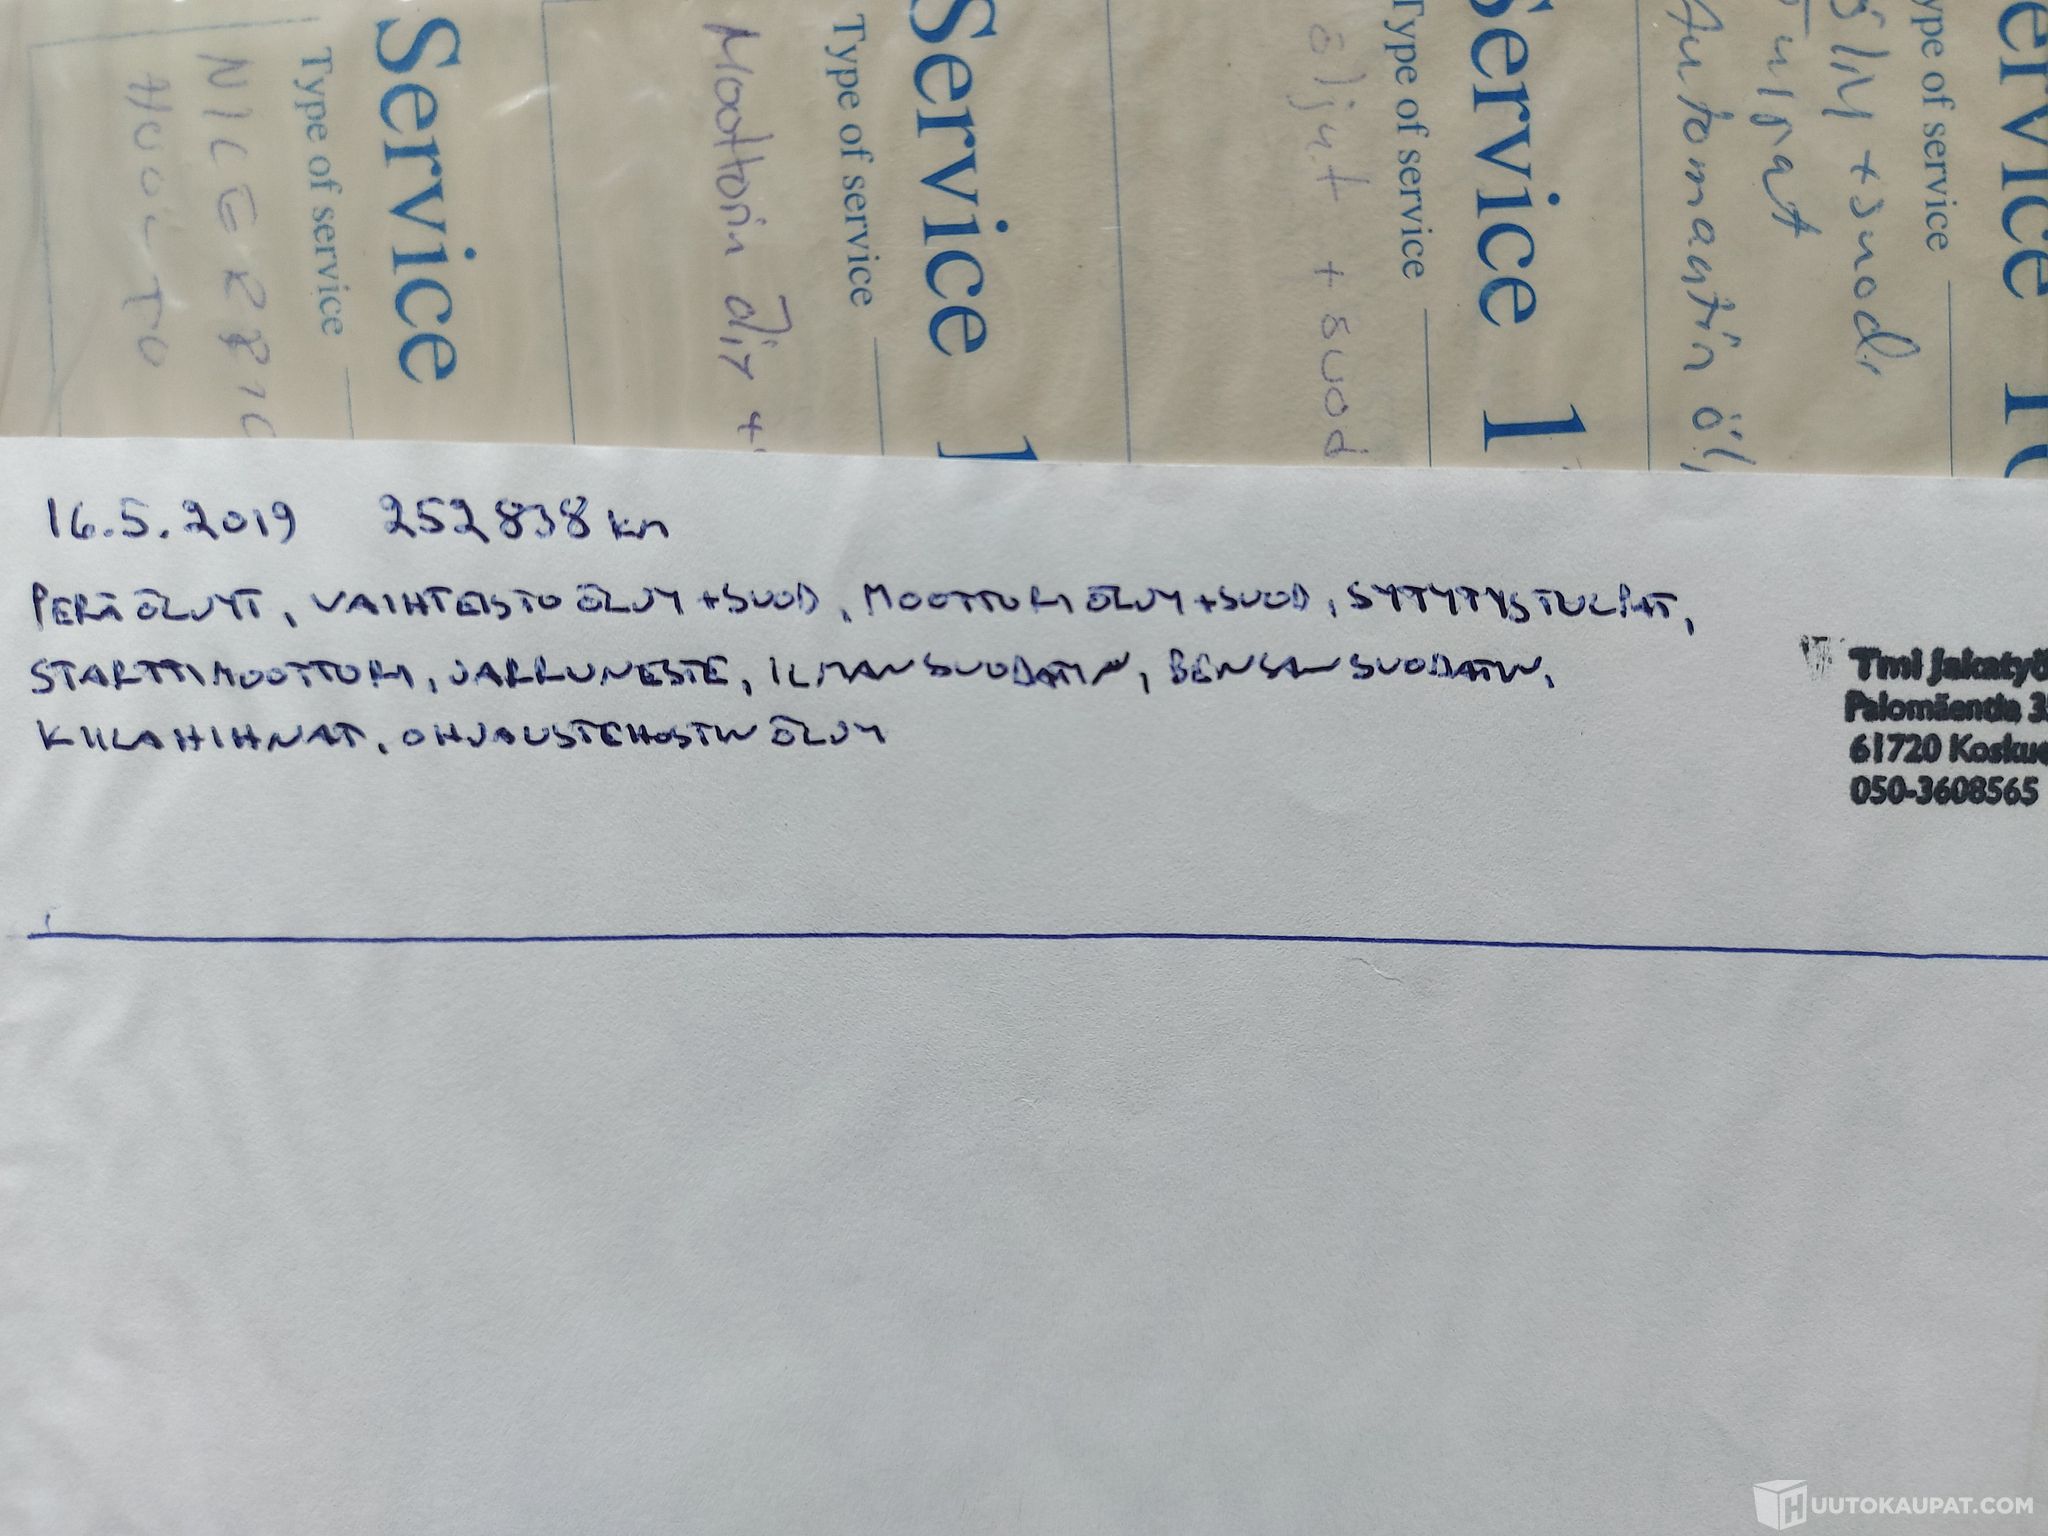 Service
Type of service
HUOLTO
Service 1
Type of service
Moottorin öljy +
Service 1
Type of service
öljyt + suod
ervice 1
ype of service
öljy + suod.
Tulpat
Automaatin öl
16.5.2019 252838 km
PERÄÖLJYT, VAIHTEISTOÖLJY+SUOD, MOOTTORIÖLJY+SUOD, SYTYTYSTULPAT,
STARTTIMOOTTORI, JARRUNESTE, ILMANSUODATIN, BENSANSUODATIN,
KIILAHIHNAT, OHJAUSTEHOSTINÖLJY
Tmi Jakatyö
Palomäentie 3
61720 Koskue
050-3608565
HUUTOKAUPAT.COM